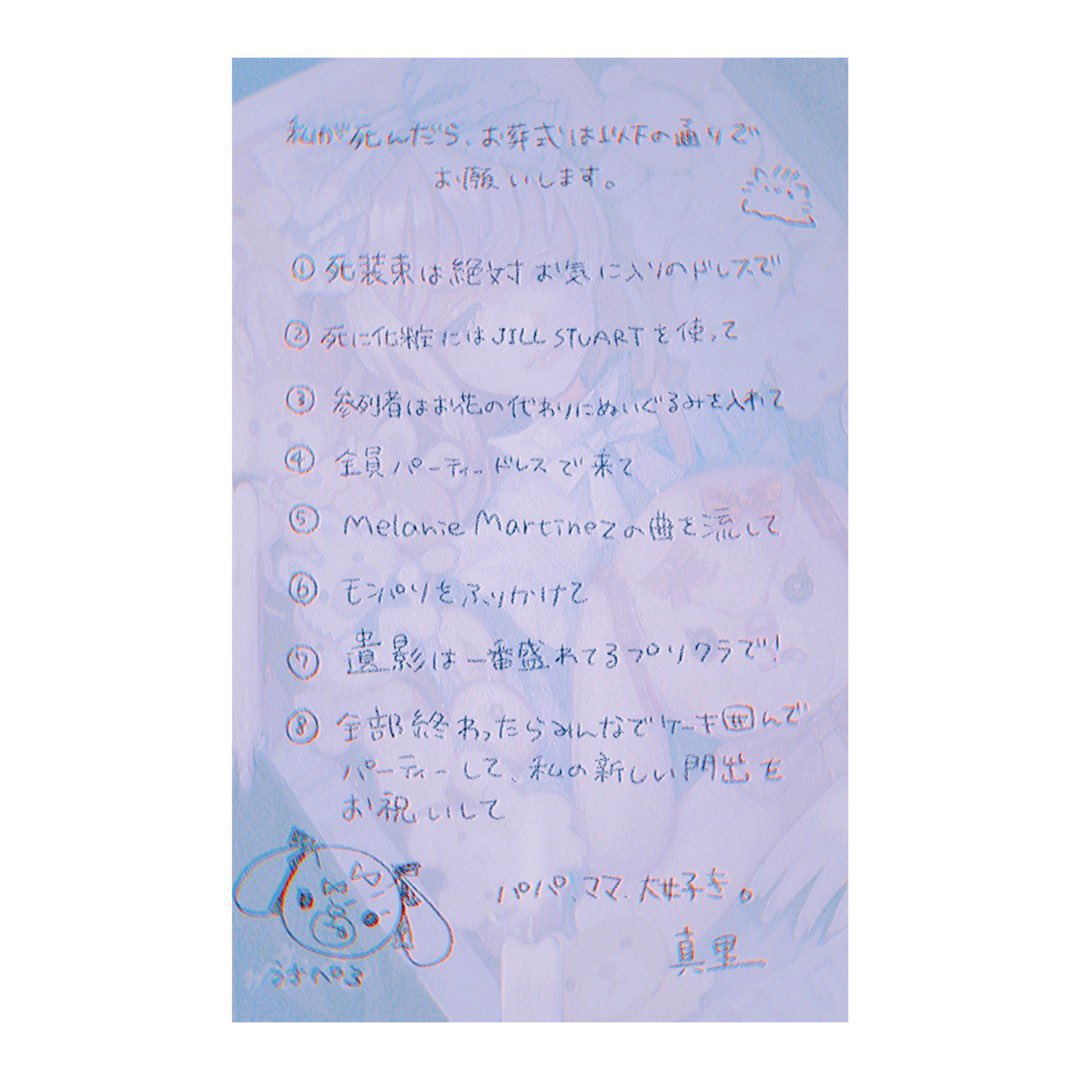 私が死んだら、お葬式は以下の通りで
お願いします。
① 死装束は絶対お気に入りのドレスで
② 死に化粧にはJILL STUARTを使って
③ 参列者はお花の代わりにぬいぐるみを入れて
④ 全員パーティードレスで来て
⑤ Melanie Martinezの曲を流して
⑥ モンパリをふりかけて
⑦ 遺影は一番盛れてるプリクラで!
⑧ 全部終わったらみんなでケーキ囲んで
パーティーして、私の新しい門出を
お祝いして
パパ、ママ、大好き。
真里
うさぺろ